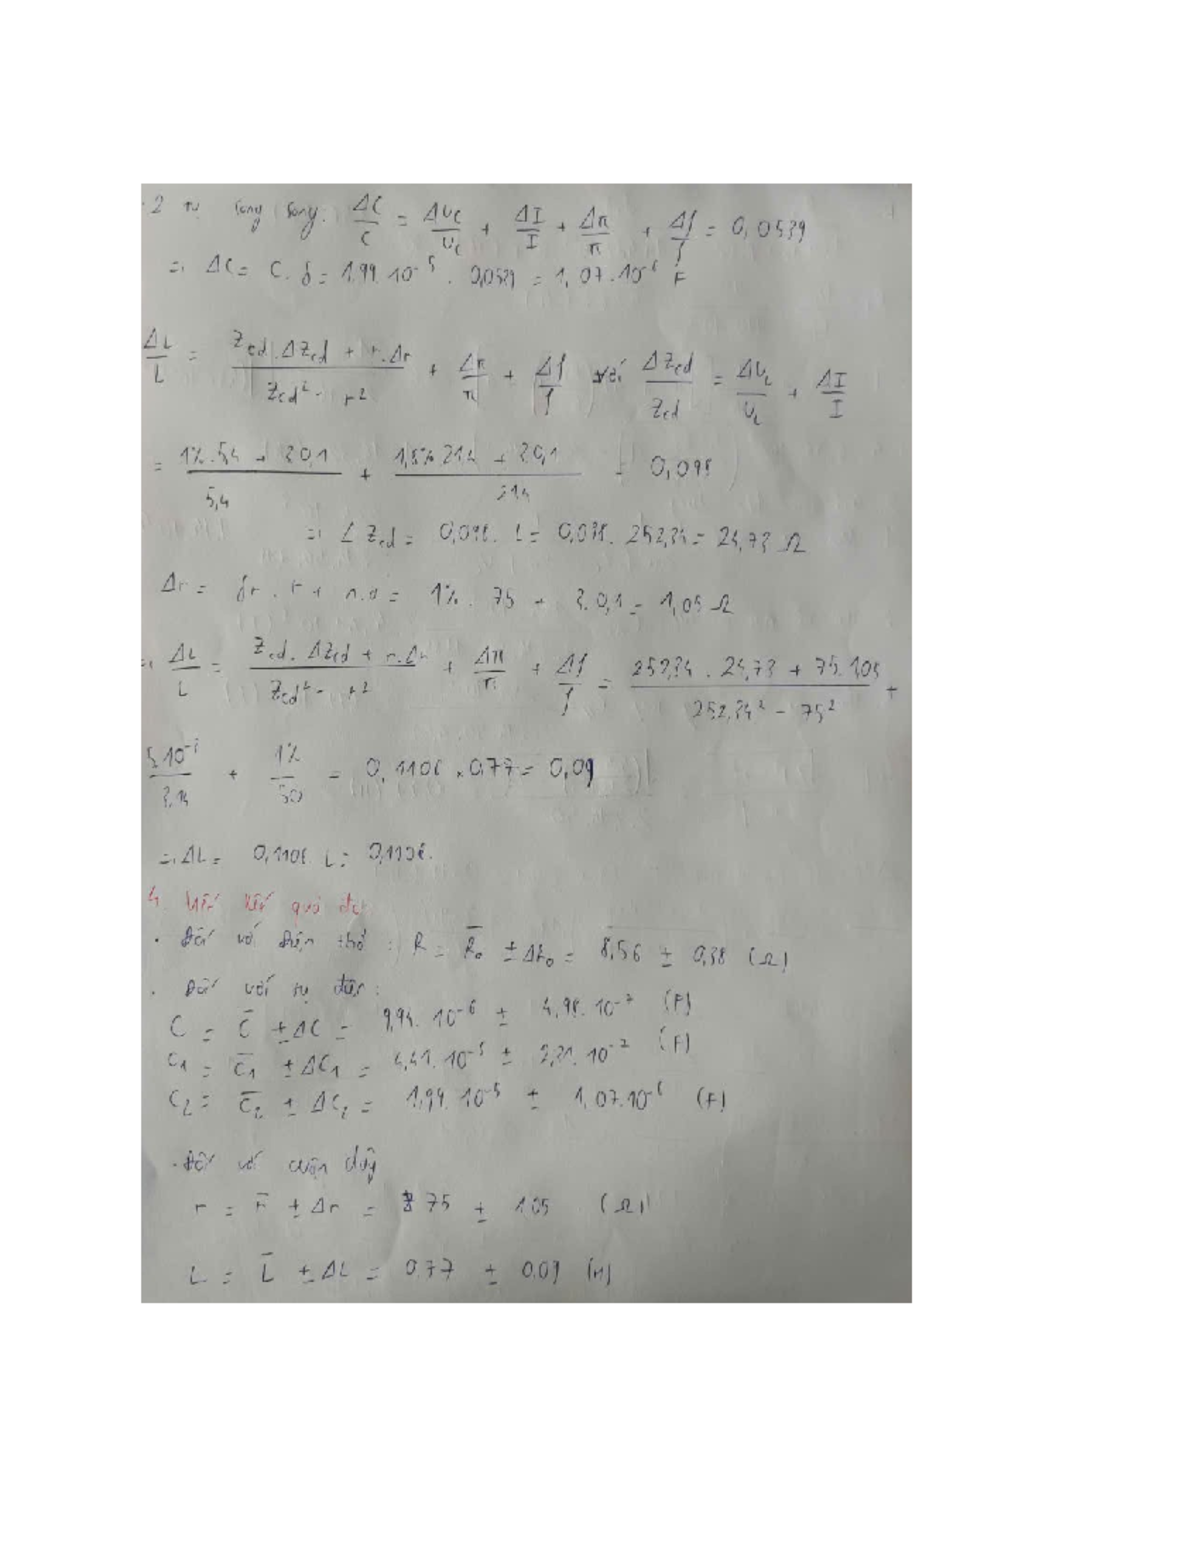 2 tụ song song: ΔC/C = ΔUc/Uc + ΔI/I + Δπ/π + Δf/f = 0,0539
=> ΔC = C.δ = 1,99.10^-5 . 0,0539 = 1,07.10^-6 F
ΔL/L = (Zcd.ΔZcd + r.Δr)/(Zcd² - r²) + Δπ/π + Δf/f với ΔZcd/Zcd = ΔUL/UL + ΔI/I
= (1%.5,4 + 20,1)/5,4 + (1,8%.214 + 20,1)/214 = 0,098
=> ΔZcd = 0,098. L = 0,098. 252,34 = 24,73 Ω
Δr = δr . r + n.α = 1% . 75 + 3.0,1 = 1,05 Ω
=> ΔL/L = (Zcd.ΔZcd + r.Δr)/(Zcd² - r²) + Δπ/π + Δf/f = (252,34 . 24,73 + 75.1,05)/(252,34² - 75²) +
5.10^-3/3,14 + 1%/50 = 0,1106 × 0,77 = 0,09
=> ΔL = 0,1106. L = 0,1106.
4. Viết kết quả đo
. Đối với điện trở : R = R̅₀ ± ΔR₀ = 8,56 ± 0,38 (Ω)
. Đối với tụ điện:
C = C̅ ± ΔC = 9,94. 10^-6 ± 4,98. 10^-7 (F)
C1 = C̅1 ± ΔC1 = 4,41. 10^-5 ± 2,21. 10^-7 (F)
C2 = C̅2 ± ΔC2 = 1,99. 10^-5 ± 1,07.10^-6 (F)
. Đối với cuộn dây
r = r̅ ± Δr = 75 ± 1,05 (Ω)
L = L̅ ± ΔL = 0,77 ± 0,09 (H)